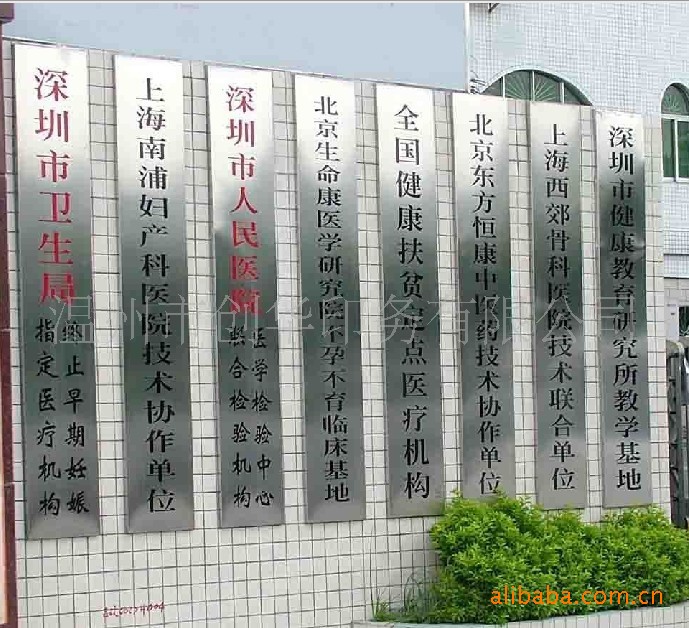 深圳市卫生局
终止早期妊娠
指定医疗机构
上海南浦妇产科医院技术协作单位
深圳市人民医院
医学检验中心
联合检验机构
北京生命康医学研究院不孕不育临床基地
全国健康扶贫定点医疗机构
北京东方恒康中医药技术协作单位
上海西郊骨科医院技术联合单位
深圳市健康教育研究所教学基地
温州市创华印务有限公司
alibaba.com.cn